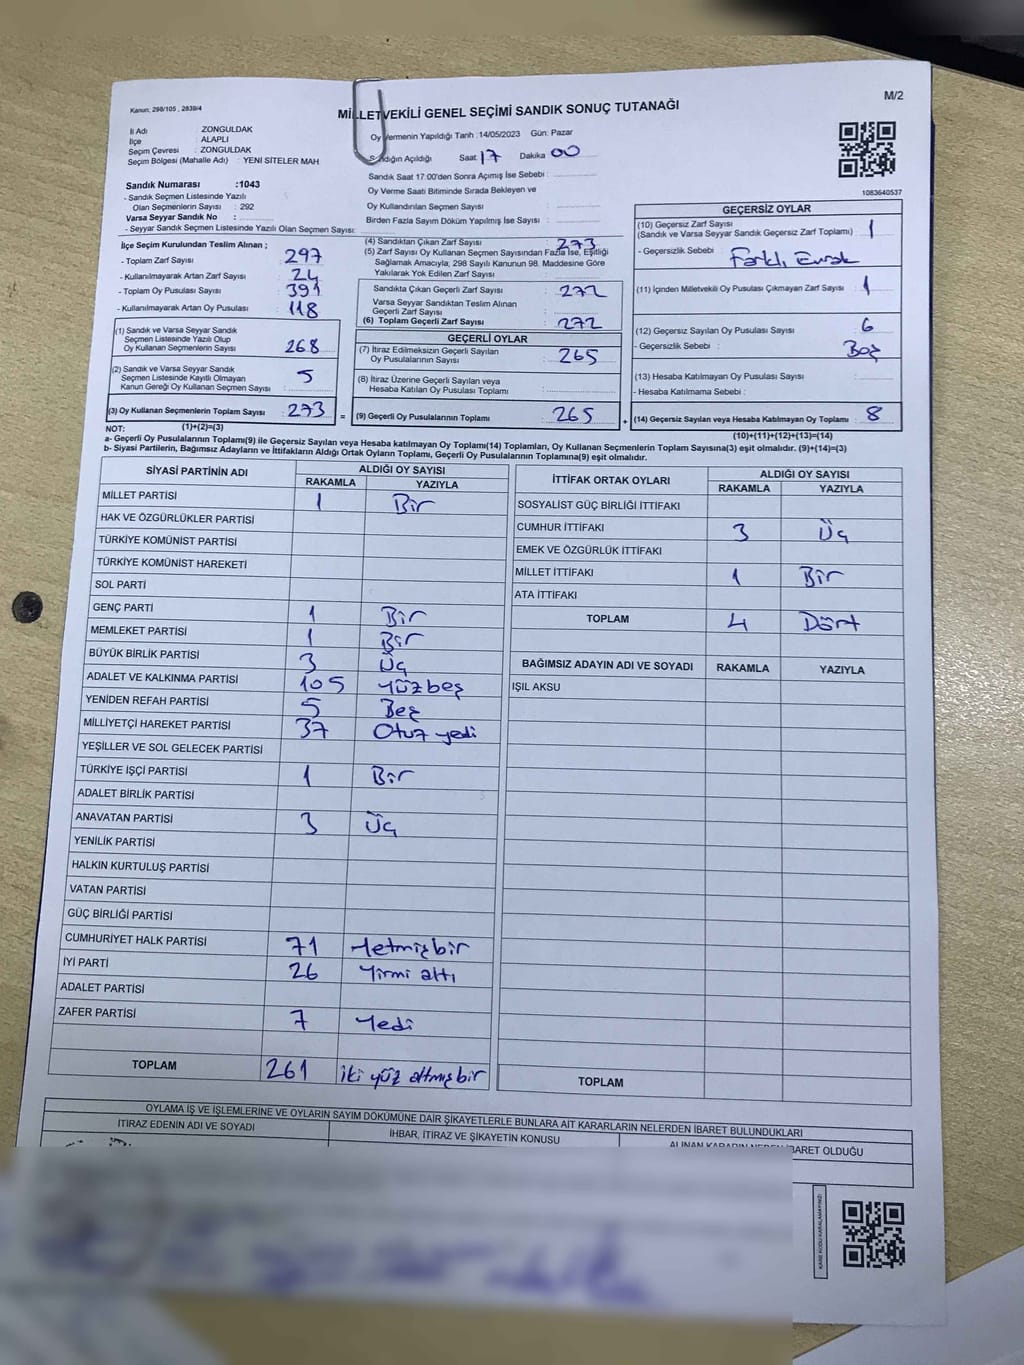 Kanun: 298/105 , 2839/4
M/2
MİLLETVEKİLİ GENEL SEÇİMİ SANDIK SONUÇ TUTANAĞI
İl Adı : ZONGULDAK
İlçe : ALAPLI
Seçim Çevresi : ZONGULDAK
Seçim Bölgesi (Mahalle Adı) : YENİ SİTELER MAH
Oy Vermenin Yapıldığı Tarih :14/05/2023 Gün: Pazar
Sandığın Açıldığı Saat 17 Dakika 00
Sandık Saat 17:00'den Sonra Açımış İse Sebebi :
Oy Verme Saati Bitiminde Sırada Bekleyen ve
Oy Kullandırılan Seçmen Sayısı :
Birden Fazla Sayım Döküm Yapılmış İse Sayısı :
1083640537
Sandık Numarası :1043
- Sandık Seçmen Listesinde Yazılı
Olan Seçmenlerin Sayısı : 292
Varsa Seyyar Sandık No :
- Seyyar Sandık Seçmen Listesinde Yazılı Olan Seçmen Sayısı:
İlçe Seçim Kurulundan Teslim Alınan ;
- Toplam Zarf Sayısı : 297
- Kullanılmayarak Artan Zarf Sayısı : 24
- Toplam Oy Pusulası Sayısı : 391
- Kullanılmayarak Artan Oy Pusulası : 118
(1) Sandık ve Varsa Seyyar Sandık
Seçmen Listesinde Yazılı Olup
Oy Kullanan Seçmenlerin Sayısı : 268
(2) Sandık ve Varsa Seyyar Sandık
Seçmen Listesinde Kayıtlı Olmayan
Kanun Gereği Oy Kullanan Seçmen Sayısı : 5
(3) Oy Kullanan Seçmenlerin Toplam Sayısı : 273 =
(4) Sandıktan Çıkan Zarf Sayısı : 273
(5) Zarf Sayısı Oy Kullanan Seçmen Sayısından Fazla İse, Eşitliği
Sağlamak Amacıyla, 298 Sayılı Kanunun 98. Maddesine Göre
Yakılarak Yok Edilen Zarf Sayısı :
Sandıkta Çıkan Geçerli Zarf Sayısı : 272
Varsa Seyyar Sandıktan Teslim Alınan
Geçerli Zarf Sayısı :
(6) Toplam Geçerli Zarf Sayısı : 272
GEÇERLİ OYLAR
(7) İtiraz Edilmeksizin Geçerli Sayılan
Oy Pusulalarının Sayısı : 265
(8) İtiraz Üzerine Geçerli Sayılan veya
Hesaba Katılan Oy Pusulası Toplamı :
(9) Geçerli Oy Pusulalarının Toplamı : 265 +
GEÇERSİZ OYLAR
(10) Geçersiz Zarf Sayısı
(Sandık ve Varsa Seyyar Sandık Geçersiz Zarf Toplamı) : 1
- Geçersizlik Sebebi : Farklı Evrak
(11) İçinden Milletvekili Oy Pusulası Çıkmayan Zarf Sayısı : 1
(12) Geçersiz Sayılan Oy Pusulası Sayısı : 6
- Geçersizlik Sebebi : Boş
(13) Hesaba Katılmayan Oy Pusulası Sayısı :
- Hesaba Katılmama Sebebi :
(14) Geçersiz Sayılan veya Hesaba Katılmayan Oy Toplamı : 8
NOT: (1)+(2)=(3)
(10)+(11)+(12)+(13)=(14)
a- Geçerli Oy Pusulalarının Toplamı(9) ile Geçersiz Sayılan veya Hesaba katılmayan Oy Toplamı(14) Toplamları, Oy Kullanan Seçmenlerin Toplam Sayısına(3) eşit olmalıdır. (9)+(14)=(3)
b- Siyasi Partilerin, Bağımsız Adayların ve İttifakların Aldığı Ortak Oyların Toplamı, Geçerli Oy Pusulalarının Toplamına(9) eşit olmalıdır.
SİYASİ PARTİNİN ADI ALDIĞI OY SAYISI
RAKAMLA YAZIYLA
MİLLET PARTİSİ 1 Bir
HAK VE ÖZGÜRLÜKLER PARTİSİ
TÜRKİYE KOMÜNİST PARTİSİ
TÜRKİYE KOMÜNİST HAREKETİ
SOL PARTİ
GENÇ PARTİ 1 Bir
MEMLEKET PARTİSİ 1 Bir
BÜYÜK BİRLİK PARTİSİ 3 Üç
ADALET VE KALKINMA PARTİSİ 105 Yüzbeş
YENİDEN REFAH PARTİSİ 5 Beş
MİLLİYETÇİ HAREKET PARTİSİ 37 Otuz yedi
YEŞİLLER VE SOL GELECEK PARTİSİ
TÜRKİYE İŞÇİ PARTİSİ 1 Bir
ADALET BİRLİK PARTİSİ
ANAVATAN PARTİSİ 3 Üç
YENİLİK PARTİSİ
HALKIN KURTULUŞ PARTİSİ
VATAN PARTİSİ
GÜÇ BİRLİĞİ PARTİSİ
CUMHURİYET HALK PARTİSİ 71 Yetmişbir
İYİ PARTİ 26 Yirmi altı
ADALET PARTİSİ
ZAFER PARTİSİ 7 Yedi
TOPLAM 261 iki yüz altmışbir
İTTİFAK ORTAK OYLARI ALDIĞI OY SAYISI
RAKAMLA YAZIYLA
SOSYALİST GÜÇ BİRLİĞİ İTTİFAKI
CUMHUR İTTİFAKI 3 Üç
EMEK VE ÖZGÜRLÜK İTTİFAKI
MİLLET İTTİFAKI 1 Bir
ATA İTTİFAKI
TOPLAM 4 Dört
BAĞIMSIZ ADAYIN ADI VE SOYADI RAKAMLA YAZIYLA
IŞIL AKSU
TOPLAM
OYLAMA İŞ VE İŞLEMLERİNE VE OYLARIN SAYIM DÖKÜMÜNE DAİR ŞİKAYETLERLE BUNLARA AİT KARARLARIN NELERDEN İBARET BULUNDUKLARI
İTİRAZ EDENİN ADI VE SOYADI İHBAR, İTİRAZ VE ŞİKAYETİN KONUSU ALINAN KARARIN NEDEN İBARET OLDUĞU
KARE KODU KARALAMAYINIZ!